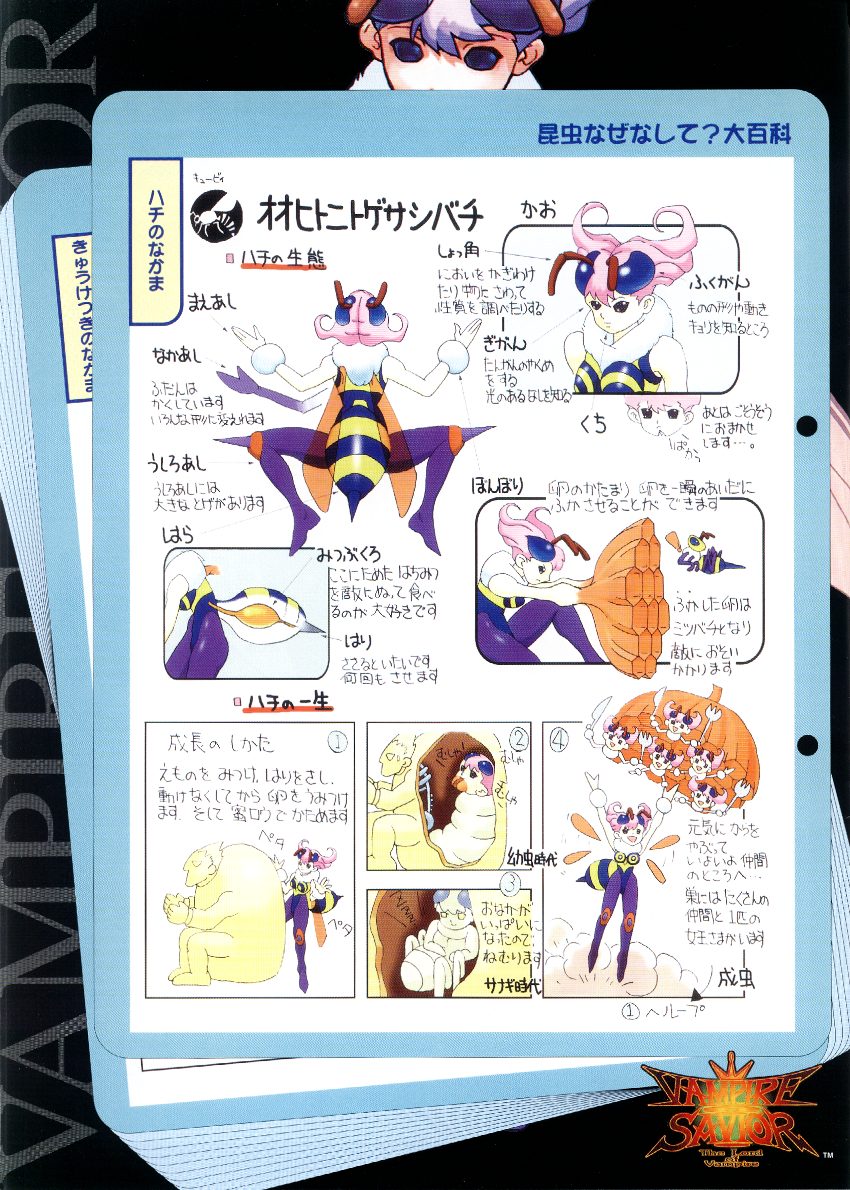 VAMPIRE
昆虫なぜなして？大百科
ハチのなかま
きゅうけつきのなかま
キュービィ
オオヒトニトゲサシバチ
ハチの生態
まえあし
なかあし
ふだんは
かくしています
いろんな形に変えれます
うしろあし
うしろあしには
大きなとげがあります
かお
しょっ角
においをかぎわけ
たり物にさわって
性質を調べたりする
ぎがん
たんがんのやくめ
をする
光のあるなしを知る
ふくがん
ものの形や動き
キョリを知るところ
くち
ぱかっ
あとはごそうぞう
におまかせ
します…。
はら
みつぶくろ
ここにためたはちみつ
を敵にぬって食べ
るのが大好きです
はり
ささるといたいです
何回もさせます
ぼんぼり
卵のかたまり 卵を一瞬のあいだに
ふかさせることができます
ふかした卵は
ミツバチとなり
敵におそい
かかります
ハチの一生
①
成長のしかた
えものをみつけ、はりをさし、
動けなくしてから卵をうみつけ
ます。そして蜜ロウでかためます
ペタ
ペタ
②
むしゃ
むしゃ
むしゃ
幼虫時代
③
おなかが
いっぱいに
なったので
ねむります
サナギ時代
④
元気にからを
やぶって
いよいよ仲間
のところへ…
巣にはたくさんの
仲間と1匹の
女王さまがいます
成虫
①へループ
VAMPIRE
SAVIOR
The Lord
of
Vampire
TM